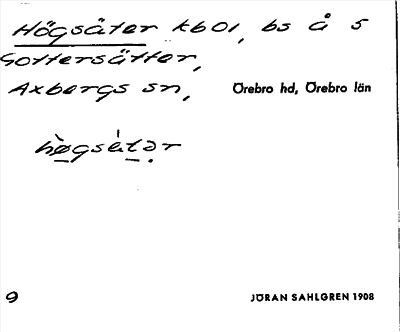 Högsäter kbol, bs å 5
Gottersätter,
Axbergs sn, Örebro hd, Örebro län
hø̀gsétər
9 JÖRAN SAHLGREN 1908